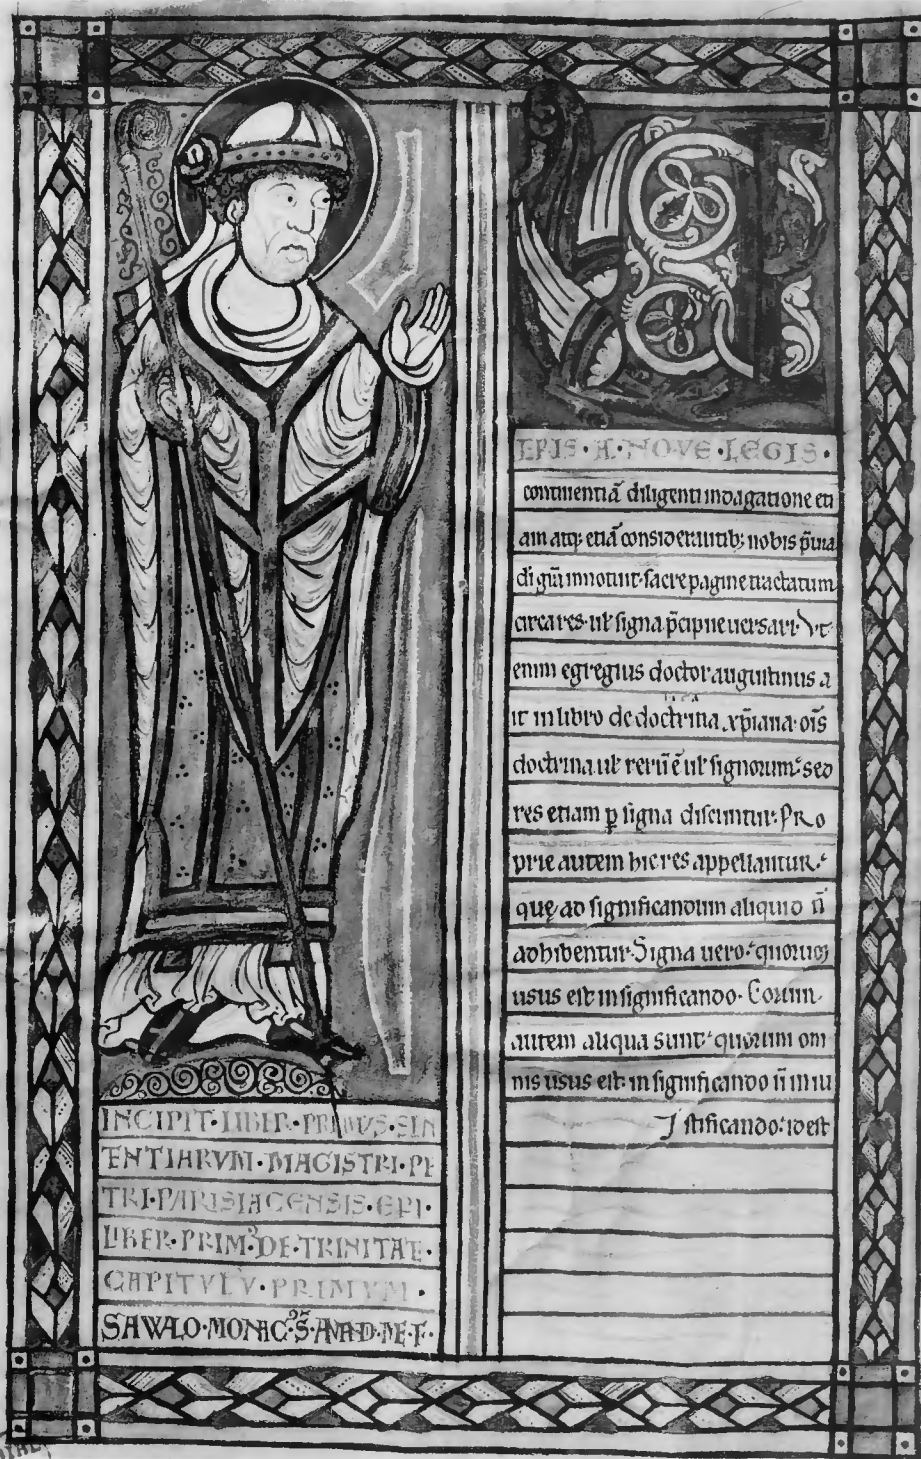 INCIPIT·LIBER·PRIMUS·SEN
ENTIARVM·MAGISTRI·PE
TRI·PARISIACENSIS·EPI·
LIBER·PRIMꝰ·DE·TRINITATE·
CAPITVLṼ·PRIMVM·
SAWALO·MONACꝰ·S̃·AMAD·ME·F·
ERIS·A·NOVE·LEGIS·
continentiã diligenti indagatione eti
am atq; etiã considerantib; nobis p̃uia
di gr̃a innotuit·sacre pagine tractatum
circa res·ul signa p̃cipue uersari·Vt
enim egregius doctor augustinus a
it in libro de doctrina xp̃iana·om̃s
doctrina ul rerũ ẽ ul signorum·sed
res etiam ꝑ signa discuntur·Pro
prie autem hic res appellantur·
quę ad significandum aliquid ñ
adhibentur·Signa uero·quorum
usus est in significando·Eorum
autem aliqua sunt·quorum om
nis usus est in significando ñ in iu
stificando·id est